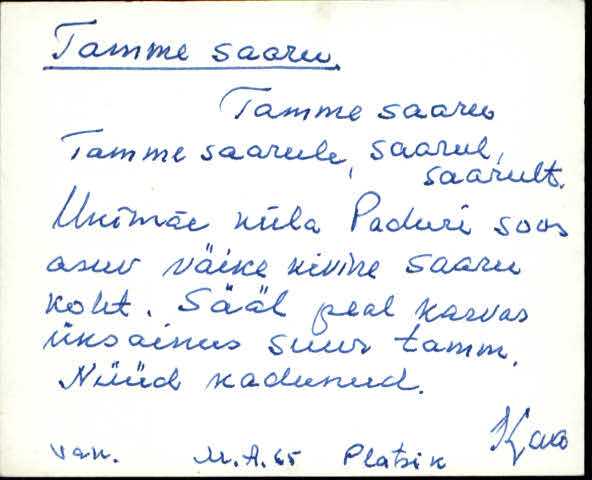 Tamme saaru
Tamme saaru
Tamme saarule, saarul,
saarult.
küla Paduri soos
asuv väike kivine saaru
koht. Sääl peal kasvas
üksainus suur tamm.
Nüüd kadunud.
van. M.A. 65 Platsik